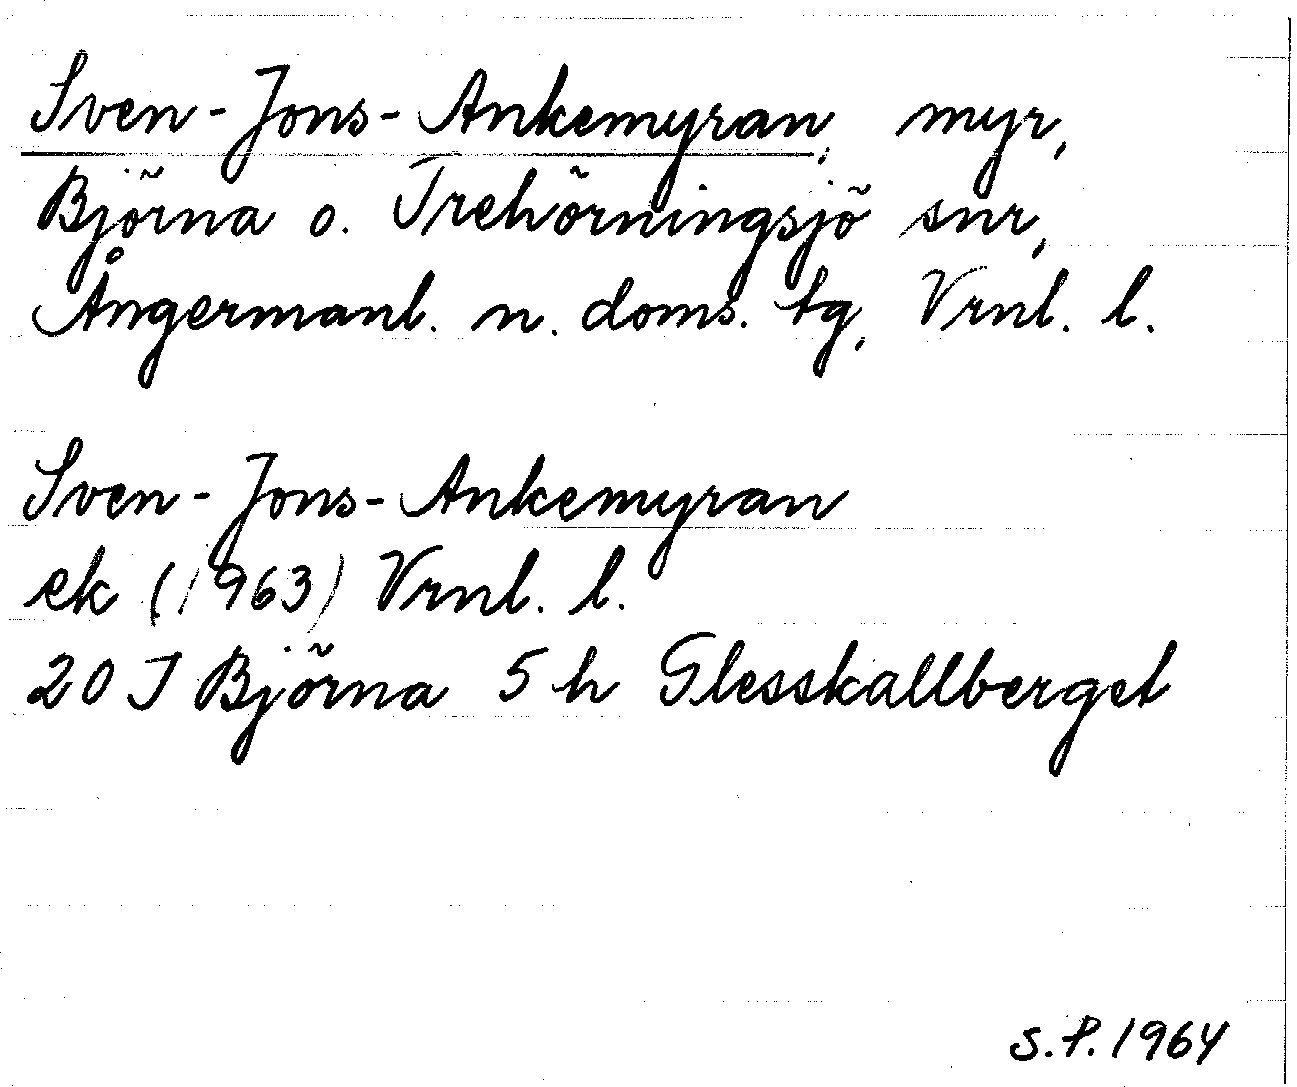 Sven-Jons-Ankemyran, myr,
Björna o. Trehörningsjö snr,
Ångermanl. n. doms. tg, Vrnl. l.
Sven-Jons-Ankemyran
ek (1963) Vrnl. l.
20 J Björna 5 h Glesskallberget
S.P. 1964